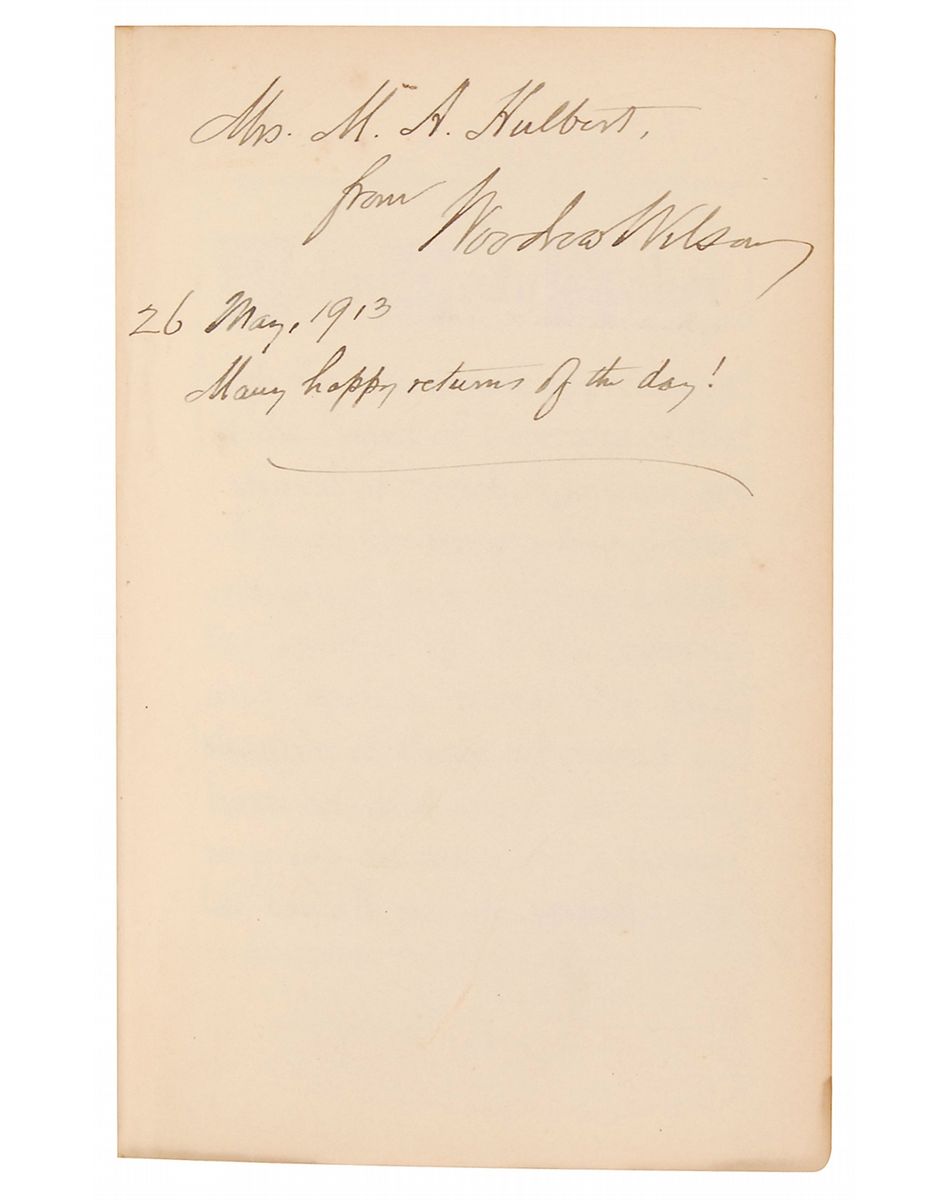 Mrs. M. A. Hulbert,
from Woodrow Wilson
26 May, 1913
Many happy returns of the day!